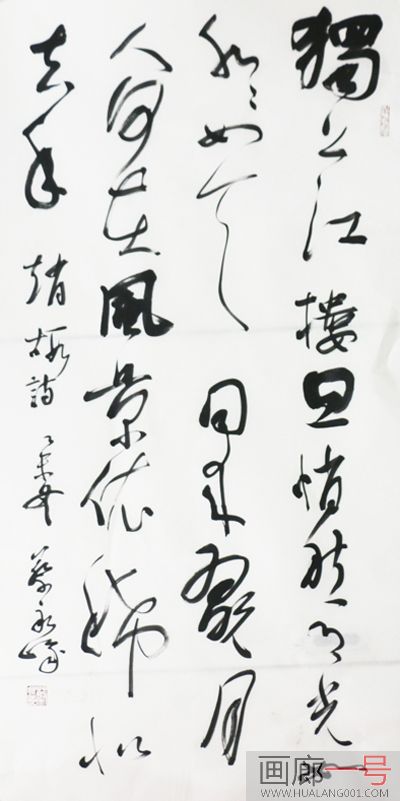 獨上江樓思悄然月光如
水々如天同來翫月
人何在風景依稀似
去年 趙嘏詩
永峰
画廊一号
WWW.HUALANG001.COM